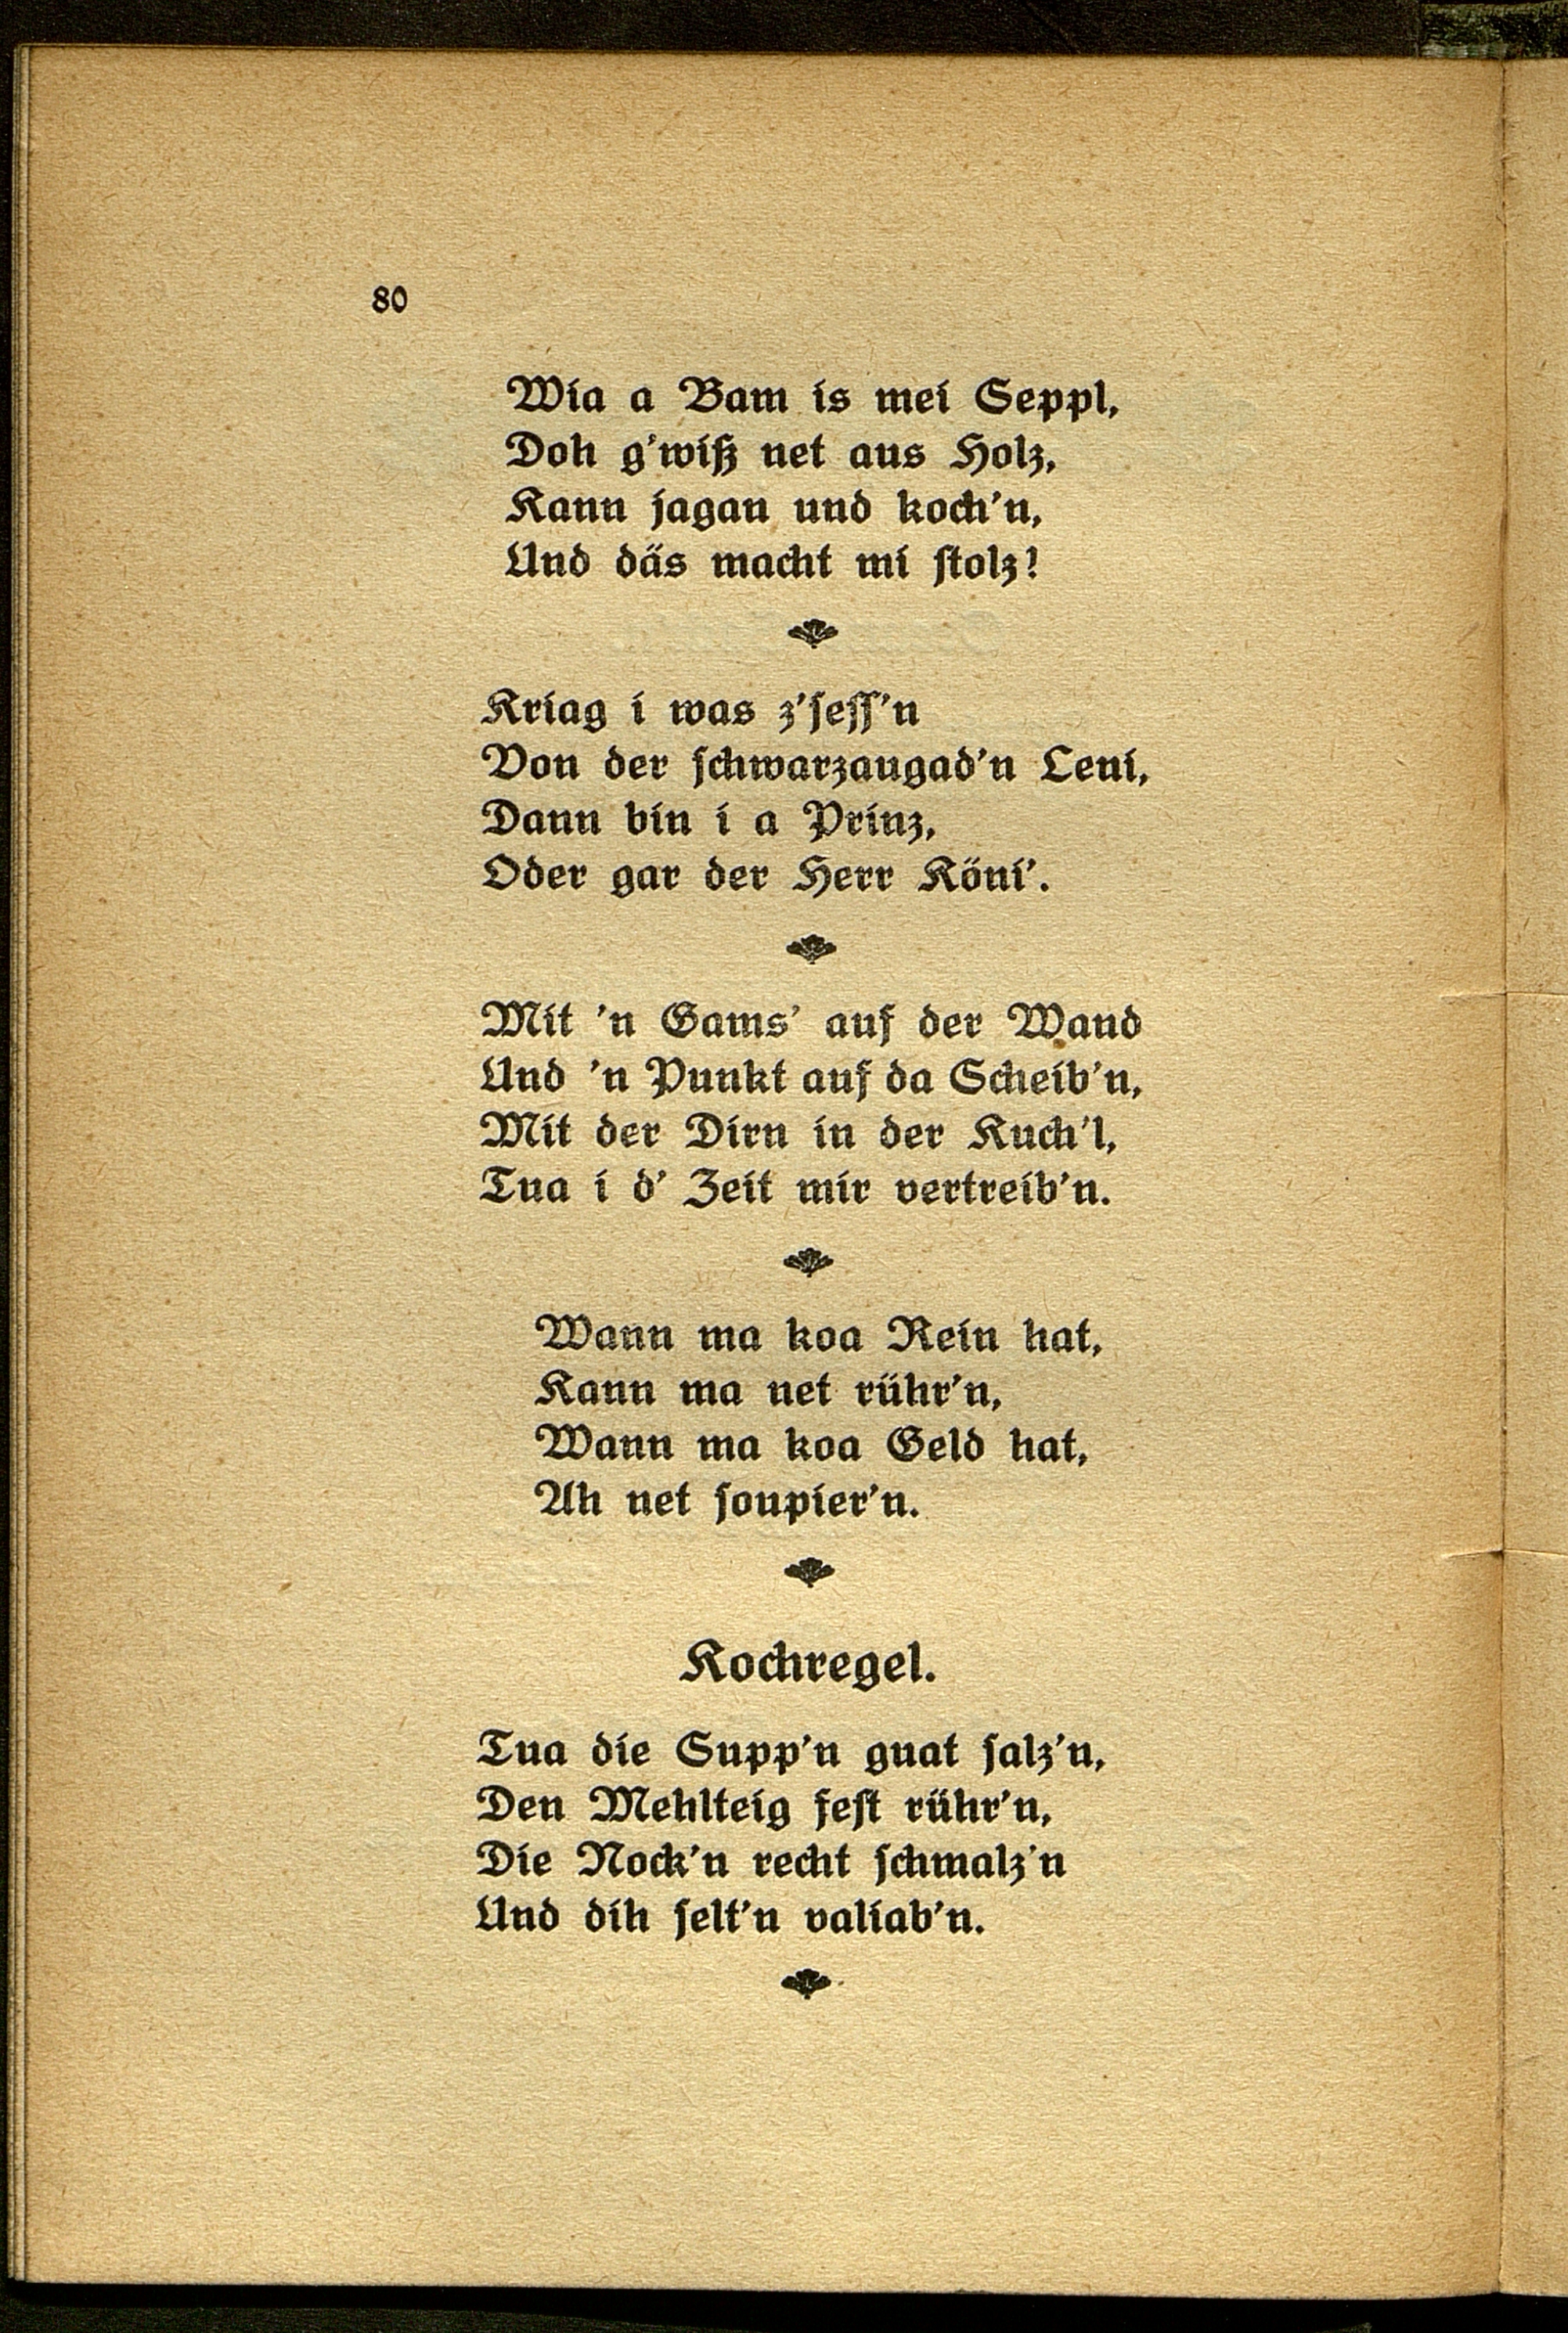 80
Wia a Bam is mei Seppl,
Doh g'wiß net aus Holz,
Kann jagan und koch'n,
Und däs macht mi stolz!
Kriag i was z'sess'n
Von der schwarzaugad'n Leni,
Dann bin i a Prinz,
Oder gar der Herr Köni'.
Mit 'n Gams' auf der Wand
Und 'n Punkt auf da Scheib'n,
Mit der Dirn in der Kuch'l,
Tua i d' Zeit mir vertreib'n.
Wann ma koa Rein hat,
Kann ma net rühr'n,
Wann ma koa Geld hat,
Ah net soupier'n.
Kochregel.
Tua die Supp'n guat salz'n,
Den Mehlteig fest rühr'n,
Die Nock'n recht schmalz'n
Und dih selt'n valiab'n.